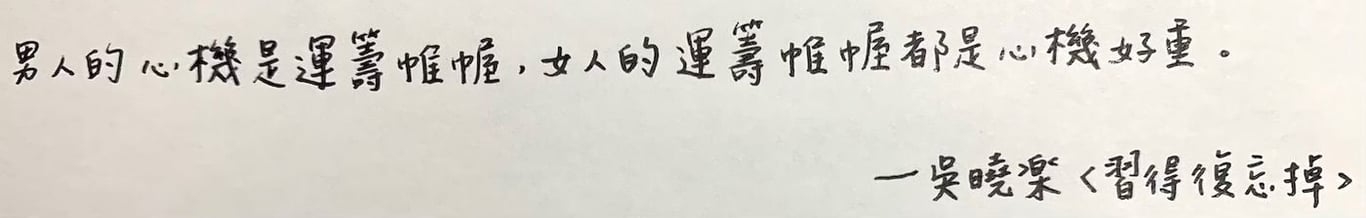 男人的心機是運籌帷幄，女人的運籌帷幄都是心機好重。
—吳曉楽〈習得復忘掉〉